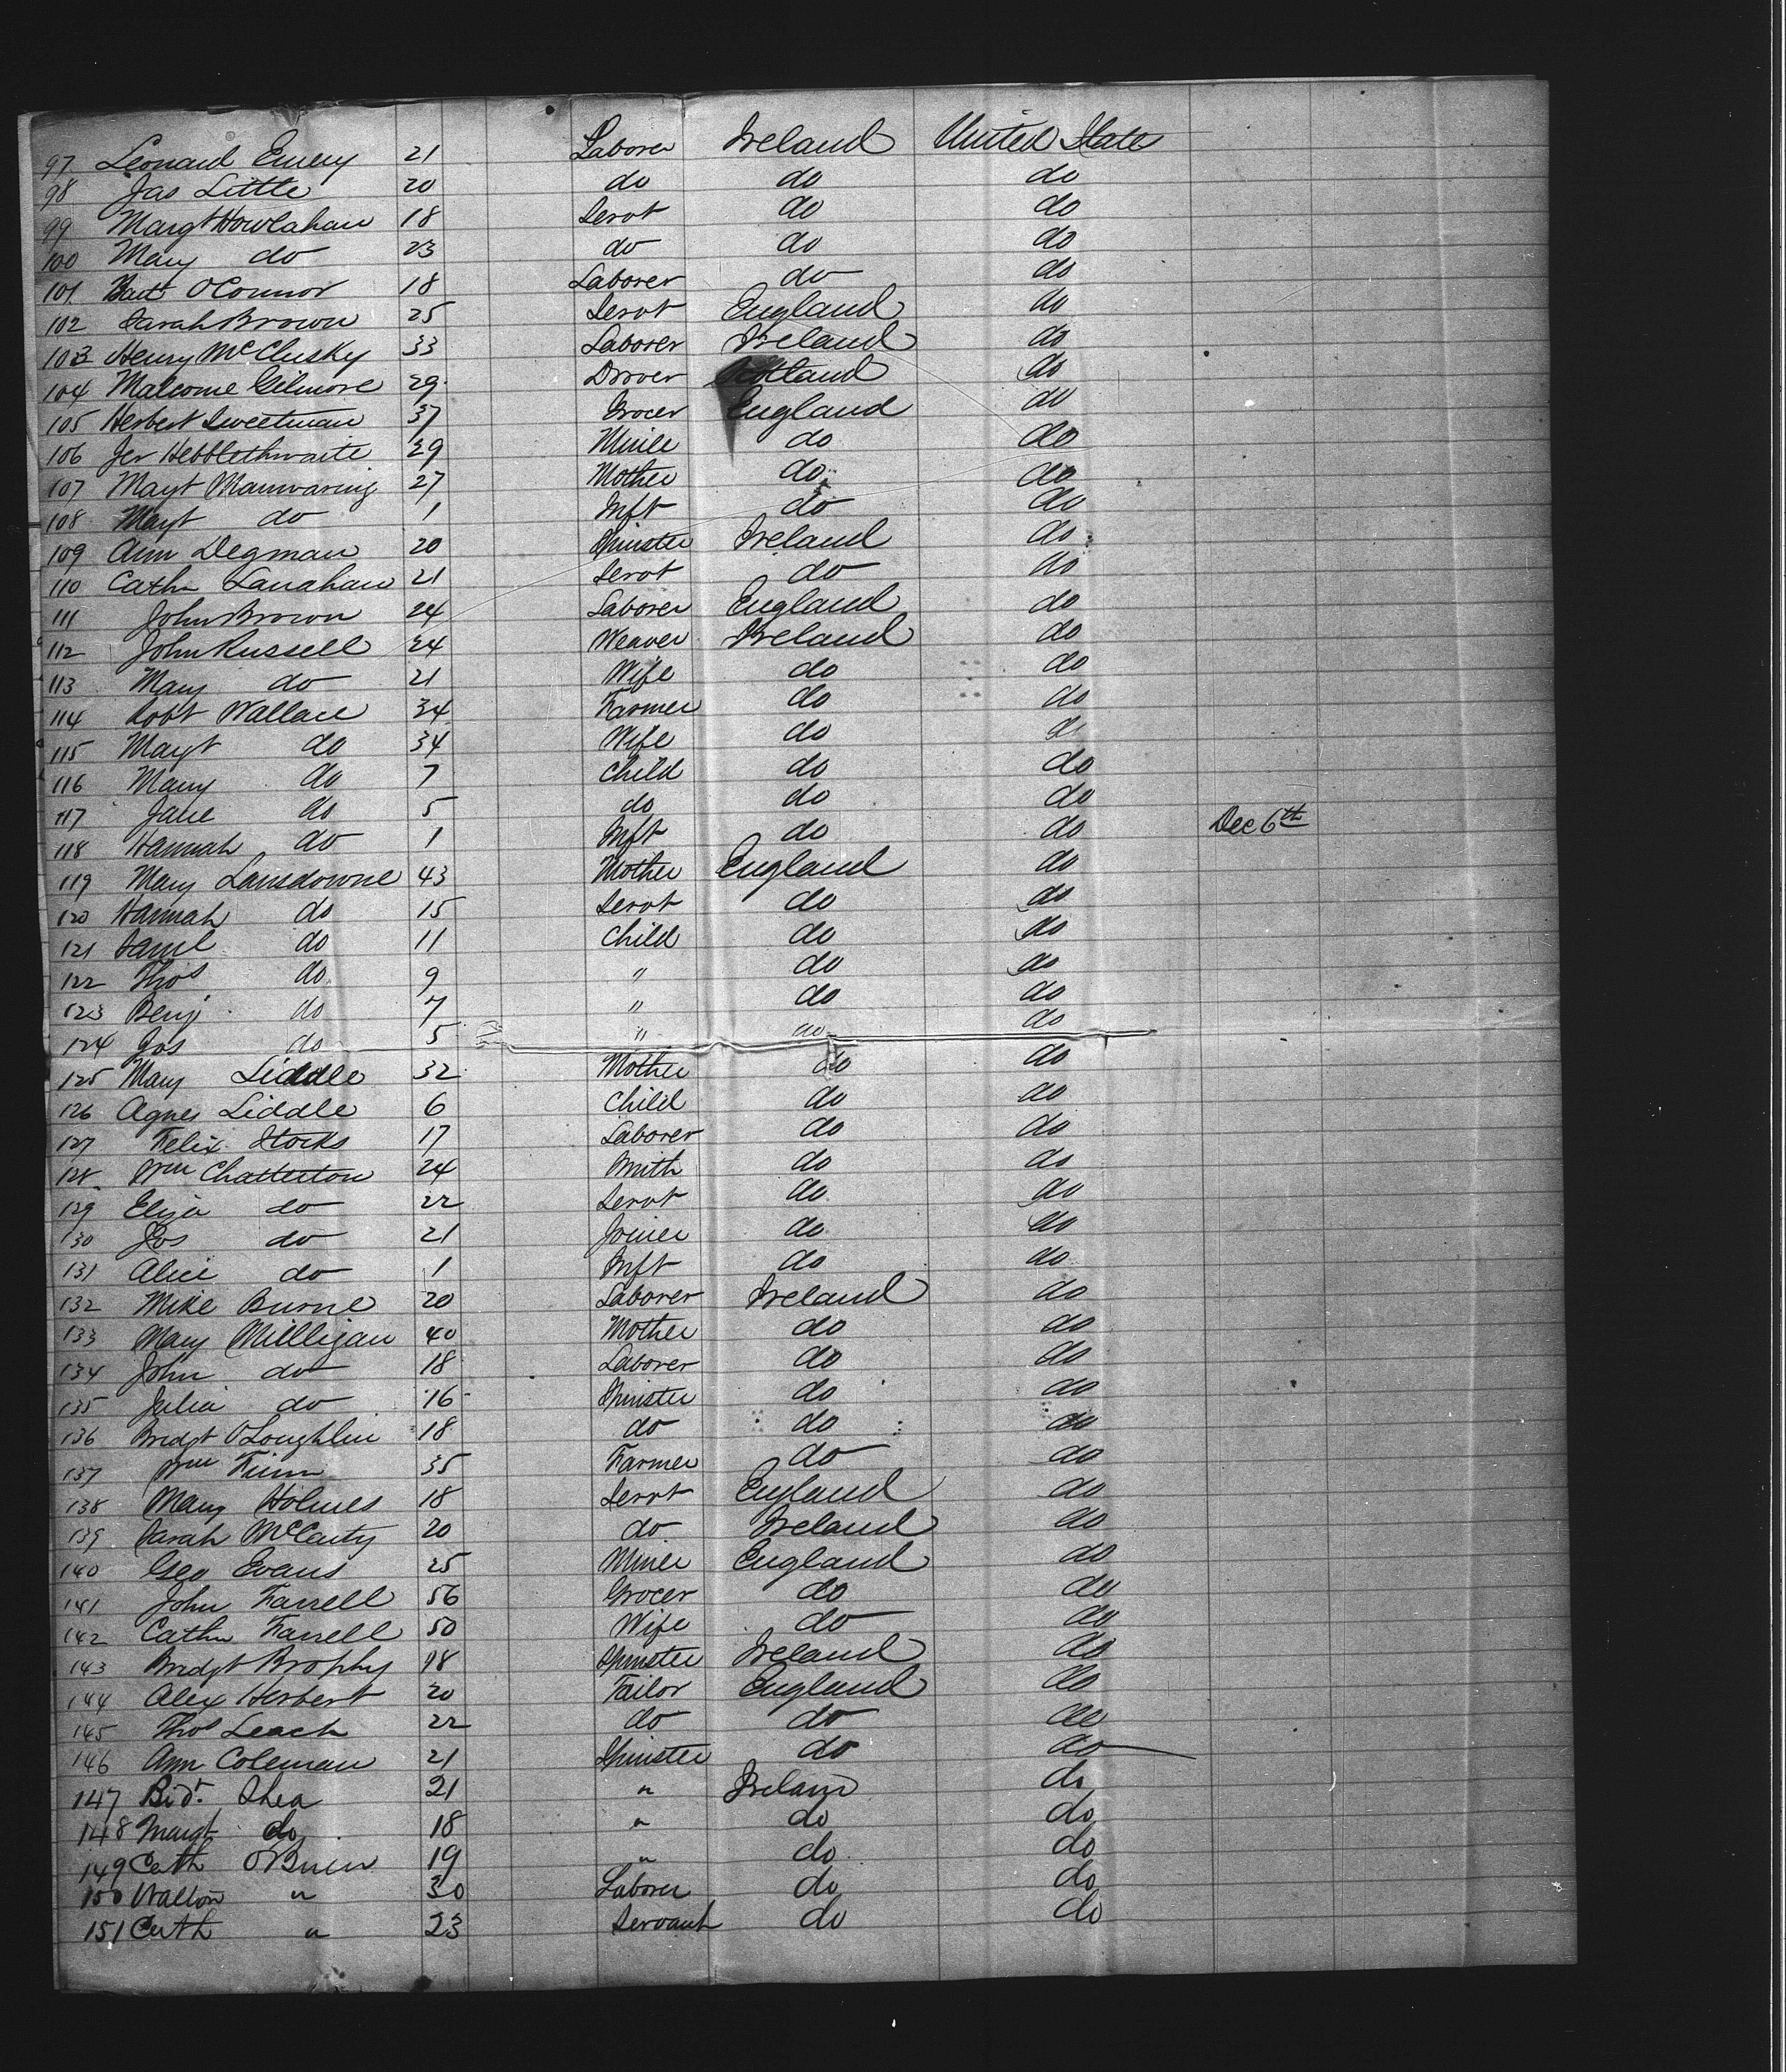 97 Leonard Emery 21 Laborer Ireland United States
98 Jas Little 20 do do do
99 Margt Howlahan 18 Servt do do
100 Mary do 23 do do do
101 Bart O'Connor 18 Laborer do do
102 Sarah Brown 25 Servt England do
103 Henry McClusky 33 Laborer Ireland do
104 Malcome Gilmore 29 Drover Scotland do
105 Herbert Sweetman 37 Grocer England do
106 Jer Hebblethwaite 29 Miner do do
107 Magt Manwaring 27 Mother do do
108 Magt do 1 Inft do do
109 Ann Degman 20 Spinster Ireland do
110 Cathn Lanahan 21 Servt do do
111 John Brown 24 Laborer England do
112 John Russell 24 Weaver Ireland do
113 Mary do 21 Wife do do
114 Robt Wallace 34 Farmer do do
115 Magt do 34 Wife do do
116 Mary do 7 Child do do
117 Jane do 5 do do do
118 Hannah do 1 Inft do do Dec 6th
119 Mary Lansdowne 43 Mother England do
120 Hannah do 15 Servt do do
121 Saml do 11 Child do do
122 Thos do 9 " do do
123 Benj do 7 " do do
124 Jos do 5 " do do
125 Mary Liddle 32 Mother do do
126 Agnes Liddle 6 Child do do
127 Felix Stocks 17 Laborer do do
128 Wm Chatterton 24 Smith do do
129 Eliza do 22 Servt do do
130 Jos do 21 Joiner do do
131 Alice do 1 Inft do do
132 Mike Burne 20 Laborer Ireland do
133 Mary Milligan 40 Mother do do
134 John do 18 Laborer do do
135 Julia do 16 Spinster do do
136 Bredgt O'Loughlin 18 do do do
137 Wm Finn 35 Farmer do do
138 Mary Holmes 18 Servt England do
139 Sarah McCarty 20 do Ireland do
140 Geo Evans 25 Miner England do
141 John Farrell 56 Grocer do do
142 Cathn Farrell 50 Wife do do
143 Bredgt Brophy 18 Spinster Ireland do
144 Alex Herbert 20 Tailor England do
145 Thos Leach 22 do do do
146 Ann Coleman 21 Spinster do do
147 Bidt. Shea 21 " Ireland do
148 Margt do 18 " do do
149 Cath O'Brien 19 " do do
150 " 30 Laborer do do
151 Cath " 23 Servant do do